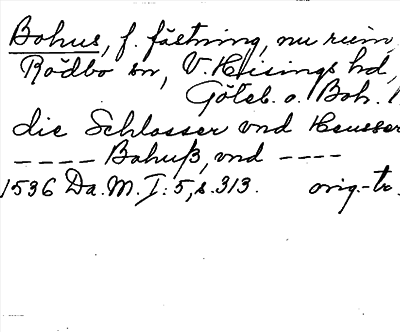 Bohus, f. fästning, nu ruin,
Rödbo sn, V. Hisings hd,
Göteb. o. Boh. l
die Schlosser vnd Heusser
---- Bahuß, vnd ----
1536 Da. M. I: 5, s. 313. orig.-tr.